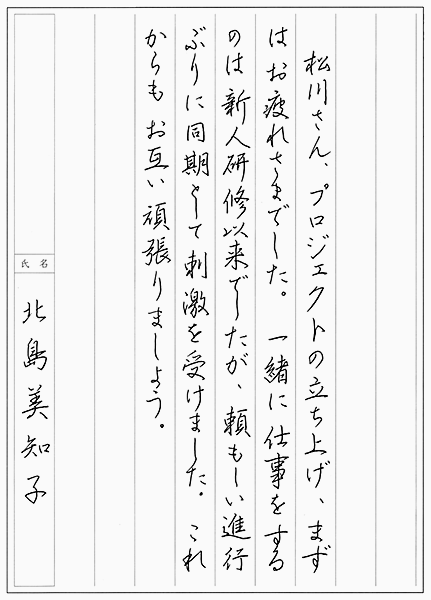 松川さん、プロジェクトの立ち上げ、まず
はお疲れさまでした。 一緒に仕事をする
のは新人研修以来でしたが、頼もしい進行
ぶりに同期として刺激を受けました。 これ
からもお互い頑張りましょう。
氏名
北島美知子